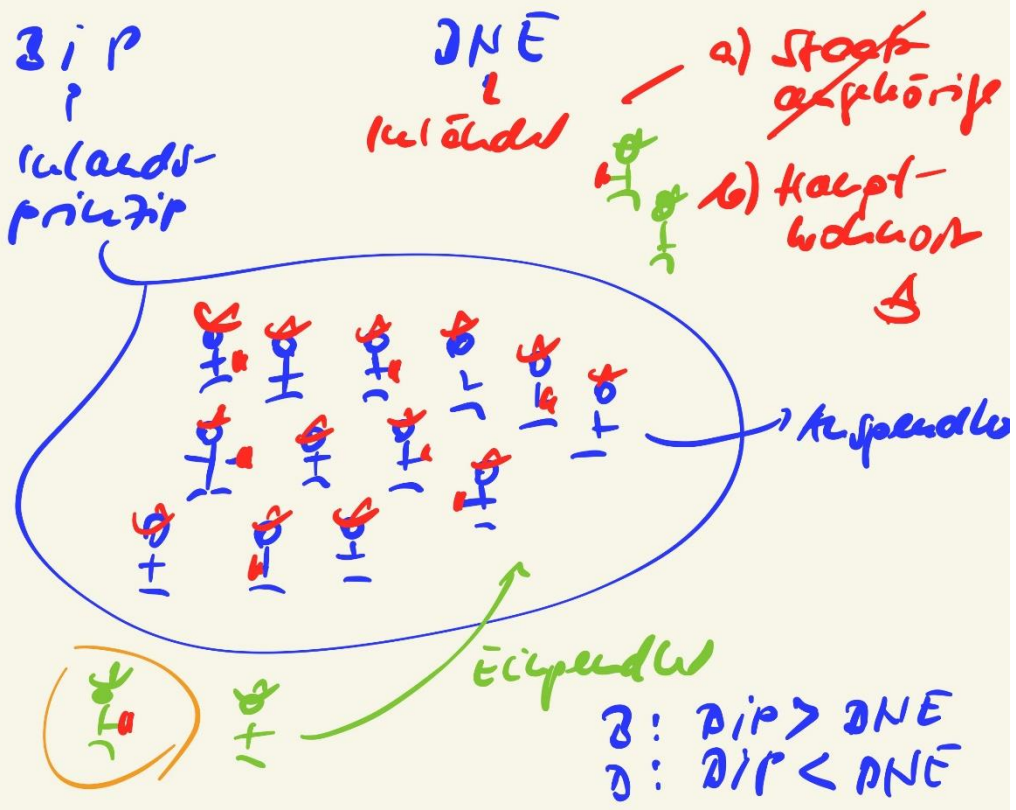 BiP
Inlands-
prinzip
BNE
Inländer
a) Staats
angehörige
b) Haupt-
wohnort
Auspendler
Einpendler
B: BiP > BNE
D: BiP < BNE